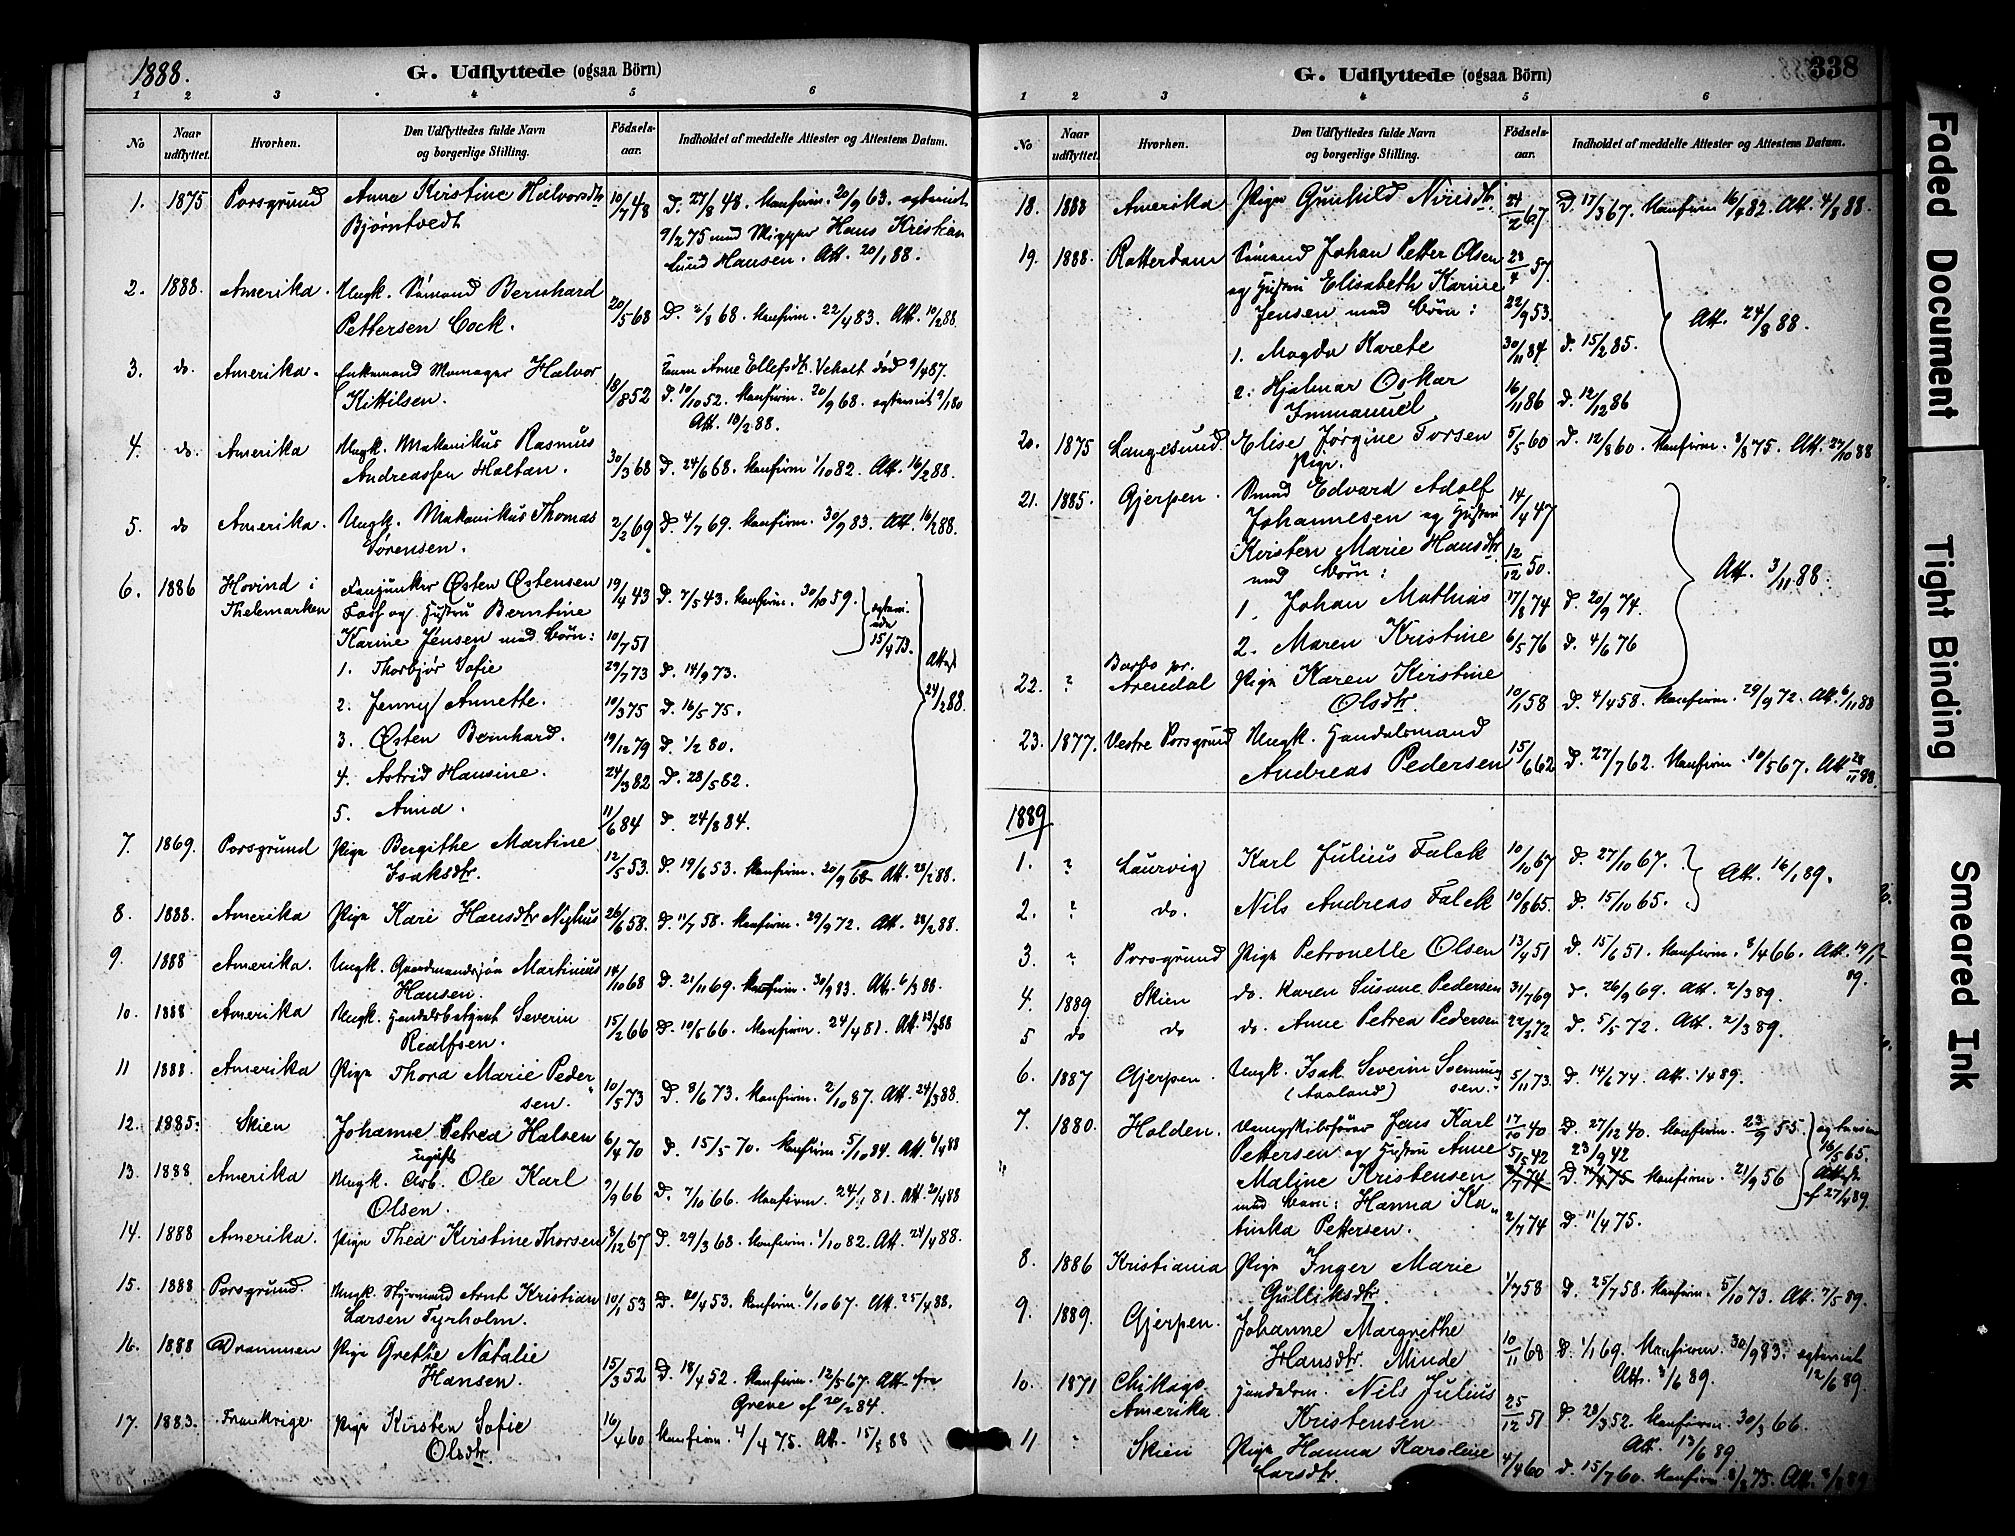 1888.
G. Udflyttede (ogsaa Börn)
1 2 3 4 5 6
No
Naar udflyttet.
Hvorhen.
Den Udflyttedes fulde Navn og borgerlige Stilling.
Födsels-aar.
Indholdet af meddelte Attester og Attestens Datum.
1. 1875 Porsgrund Anna Kirstine Halvorsdtr 10/7 48 D. 27/8 48. Konfirm. 20/9 63. egteviet
Bjørntvedt 9/2 75 med Skipper Hans Kristian
Lund Hansen. Att. 20/1 88.
2. 1888. Amerika. Ungk. Sömand Bernhard
Pettersen Cock. 20/5 68 D. 2/8 68. Konfirm. 22/4 83. Att. 10/2 88.
3. do. Amerika. Enkemand Halvor Anne Ellefsdtr. død 9/4 87.
Kittilsen. 18/8 52 D. 10/10 52. Konfirm. 20/9 68. egteviet 9/1 80
Att. 10/2 88.
4. do. Amerika Ungk. Makanikus Rasmus
Andreassen Haltan. 30/3 68 D. 24/6 68. Konfirm 1/10 82. Att. 16/2 88.
5. do Amerika. Ungk. Makanikus Thomas 2/2 69 D. 4/7 69. Konfirm. 30/9 83. Att. 16/2 88.
Sörensen.
6. 1886 Hovind i Fanjunker Østen Østensen 19/4 43 D. 7/5 43. Konfirm. 30/10 59.
Thelemarken og Hustru Berntine
Karine Jensen med Börn: 10/7 51 15/4 73.
1. Thorbjør Sofie 29/7 73 D. 14/9 73. Attest
2. Jenny Annette. 10/3 75 D. 16/5 75. 24/2 88.
3. Østen Bernhard. 19/12 79 D. 1/2 80.
4. Astrid Hansine. 24/3 82 D. 28/5 82.
5. 11/6 84 D. 24/8 84.
7. 1869. Porsgrund Pige Bergithe Martine
Isaksdtr. 12/5 53. D. 19/6 53. Konfirm. 20/9 68 Att. 28/2 88.
8. 1888. Amerika Pige Kari Hansdtr Nyhus 26/6 58. D. 11/7 58. Konfirm. 29/9 72. Att. 28/2 88.
9. 1888 Amerika. Ungk. Martinius 14/10 68 D. 21/11 69. Konfirm. 30/9 83. Att. 6/3 88.
Hansen.
10. 1888 Amerika Ungk. Severin 15/2 66 D. 10/5 66. Konfirm. 24/4 81. Att. 13/3 88
Rialfsen.
11 1888. Amerika Pige Thora Marie Peder-
sen. 10/5 73 D. 8/6 73. Konfirm. 2/10 87. Att. 24/3 88.
12. 1885. Skien Johanne Petrea Halsen 6/4 70 D. 15/5 70. Konfirm. 5/10 84. Att. 6/4 88
ugift
13. 1888 Amerika Ungk. Arb. Ole Karl 9/9 66 D. 7/10 66. Konfirm. 24/4 81. Att. 20/4 88
Olsen.
14. 1888 Amerika. Pige Thea Kirstine Thorsen 8/12 67 D. 29/3 68. Konfirm. 1/10 82. Att. 24/4 88.
15. 1888 Porsgrund. Ungk. Styrmand Arnt Kristian 10/1 53 D. 20/4 53. Konfirm. 6/10 67. Att. 25/4 88.
Larsen Tyrholm.
16. 1888 Drammen Pige Grethe Natalie 15/3 52 D. 18/4 52. Konfirm. 12/5 67. Att. fra
Hansen. Greve af 20/2 84.
17. 1883. Frankrige. Pige Kirsten Sofie 16/4 60 Konfirm. 4/4 75. Att. 15/5 88
Olsdtr.
338
G. Udflyttede (ogsaa Börn)
1 2 3 4 5 6
No
Naar udflyttet.
Hvorhen.
Den Udflyttedes fulde Navn og borgerlige Stilling.
Födsels-aar.
Indholdet af meddelte Attester og Attestens Datum.
18. 1888 Amerika Pige Gunhild Nirisdtr. 24/2 67 D. 17/3 67. Konfirm 16/4 82. Att. 4/8 88.
19. 1888. Rotterdam Sömand Johan Petter Olsen 23/4 57.
og Hustru Elisabeth Karine 22/9 53.
Jensen med Börn: Att. 24/8 88.
1. Magda Karete 30/11 84 D. 15/2 85.
2. Hjalmar Oskar 16/11 86 D. 12/12 86
Immanuel
20. 1875 Langesund Elise Jørgine Torsen 5/5 60 D. 12/8 60. Konfirm. 8/8 75. Att. 27/10 88
Pige.
21. 1885. Gjerpen. Edvard Adolf 14/4 47
Johannesen og Hustru
Kirsten Marie Hansdtr 12/12 50. Att. 3/11 88.
med Börn:
1. Johan Mathias 17/8 74 D. 20/9 74.
2. Maren Kristine 6/5 76 D. 4/6 76
22. ? Barbo pr. Arendal Pige Karen Kirstine
Olsdtr. 10/1 58 D. 4/4 58. Konfirm. 29/9 72. Att. 6/11 88
23. 1877. Vestre Porsgrund Ungk. Handelsmand
Andreas Pedersen 15/6 62 D. 27/7 62. Konfirm. 10/5 67. Att 28/11 88.
1889
1. ? Laurvig Karl Julius Falck 10/10 67 D. 27/10 67. Att. 16/1 89.
2. ? do. Nils Andreas Falck 10/8 65. D. 15/10 65.
3. ? Porsgrund Pige Petronelle Olsen 13/4 51 D. 15/6 51. Konfirm. 8/4 66. Att. 19/1
89.
4. 1889 Skien do. Karen Susane Pedersen 31/7 69 D. 26/9 69. Att. 2/3 89.
5 do do do. Anne Petrea Pedersen 22/3 72 D. 5/5 72. Att. 2/3 89.
6. 1887 Gjerpen. Ungk. Isak Severin 5/11 73. D. 14/6 74. Att. 1/4 89.
(Aaaland) sen.
7. 1880. Holden. Jens Karl 17/10 40 D. 27/12 40. Konfirm. 23/9 55.
Pettersen og Hustru Anne 5/5 42 23/9 42 16/5 65.
Maline Kristensen 2/7 74 D. 11/4 75 Konfirm. 21/9 56 Attest
med Barn: Hanna Ka- af 27/4 89.
tinka Pettersen. 2/7 74 D. 11/4 75.
8. 1886 Kristiania Pige Inger Marie
Gulliksdtr. 1/7 58 D. 25/7 58. Konfirm. 5/10 73. Att. 7/5 89.
9. 1889. Gjerpen. Johanne Margrethe
Hansdtr. Minde 10/11 68 D. 1/1 69. Konfirm. 30/9 83. egteviet
Att. 3/6 89. 12/6 89
10. 1871 Chikago Amerika. Handelsm. Nils Julius
Kristensen 25/12 51 D. 28/3 52. Konfirm. 30/3 66.
Att. 13/6 89.
11 Skien Pige Hanna Karoline
Larsdtr. 4/4 60 D. 15/7 60. Konfirm.
Faded Document
Tight Binding
Smeared Ink